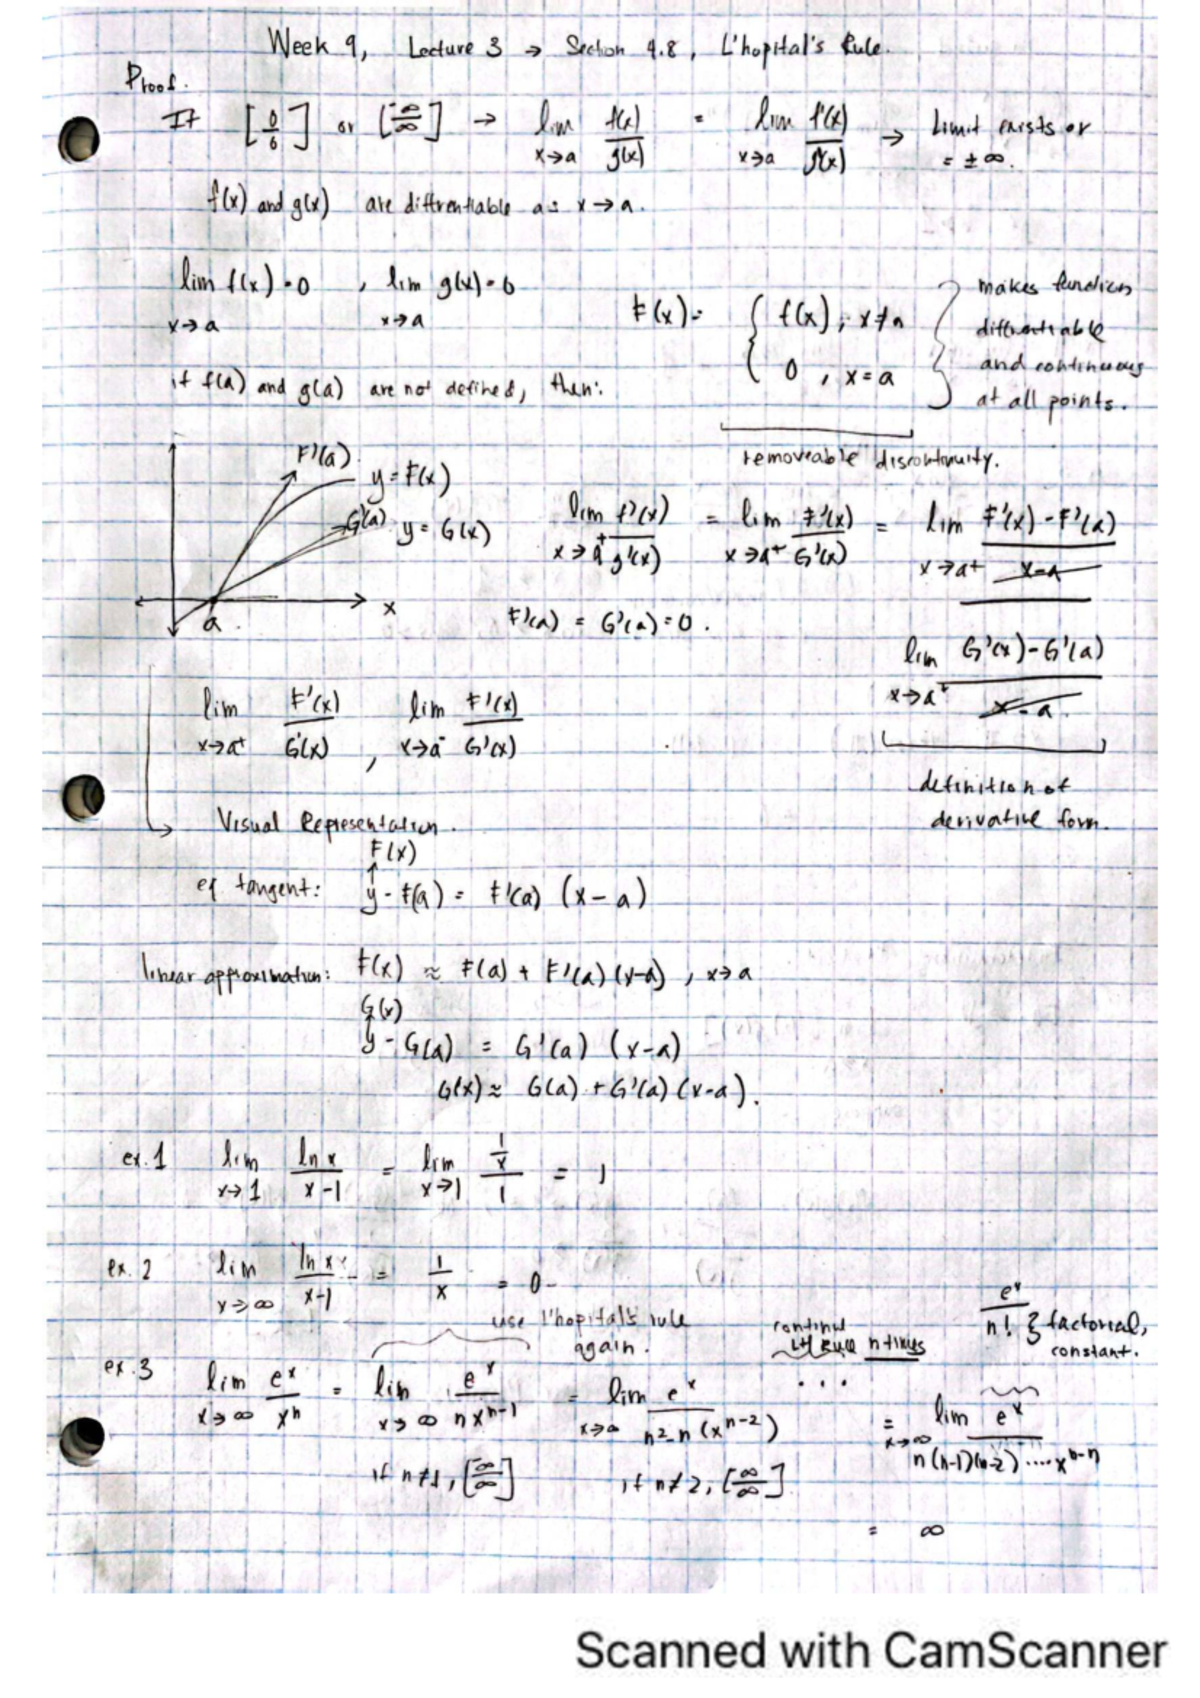 Week 9, Lecture 3 → Section 4.8, L'hopital's Rule.
Proof.
If [0/0] or [∞/∞] → lim x→a f(x)/g(x) = lim x→a f'(x)/g'(x) → Limit exists or = ±∞.
f(x) and g(x) are diffrentiable as x→a.
lim x→a f(x) = 0 , lim x→a g(x) = 0
F(x) = { f(x), x≠a
0 , x=a
makes function
diffrentiable
and continuous
at all points.
if f(a) and g(a) are not defined, then:
removeable discontinuity.
F'(a)
y = F(x)
G'(a)
y = G(x)
a
x
lim x→a⁺ f'(x)/g'(x) = lim x→a⁺ F'(x)/G'(x) = lim x→a⁺ F'(x) - F'(a) / x-a
F'(a) = G'(a) = 0.
lim x→a⁺ G'(x) - G'(a) / x-a
definition of
derivative form.
lim x→a⁺ F'(x)/G'(x) , lim x→a⁻ F'(x)/G'(x)
Visual Representation.
F(x)
↑
eq tangent: y - F(a) = F'(a) (x-a)
linear approximation: F(x) ≈ F(a) + F'(a) (x-a) , x→a
G(x)
↑
y - G(a) = G'(a) (x-a)
G(x) ≈ G(a) + G'(a) (x-a).
ex.1 lim x→1 ln x / x-1 = lim x→1 1/x / 1 = 1
ex.2 lim x→∞ ln x / x-1 = 1/x = 0
use l'hopital's rule
again.
continue
LH Rule n times
...
e^x / n! } factorial,
constant.
ex.3 lim x→∞ e^x / x^n = lim x→∞ e^x / nx^(n-1) = lim x→∞ e^x / n²-n (x^(n-2)) = lim x→∞ e^x / n(n-1)(n-2)....x^(n-n)
if n≠1, [∞/∞] if n≠2, [∞/∞]
= ∞
Scanned with CamScanner